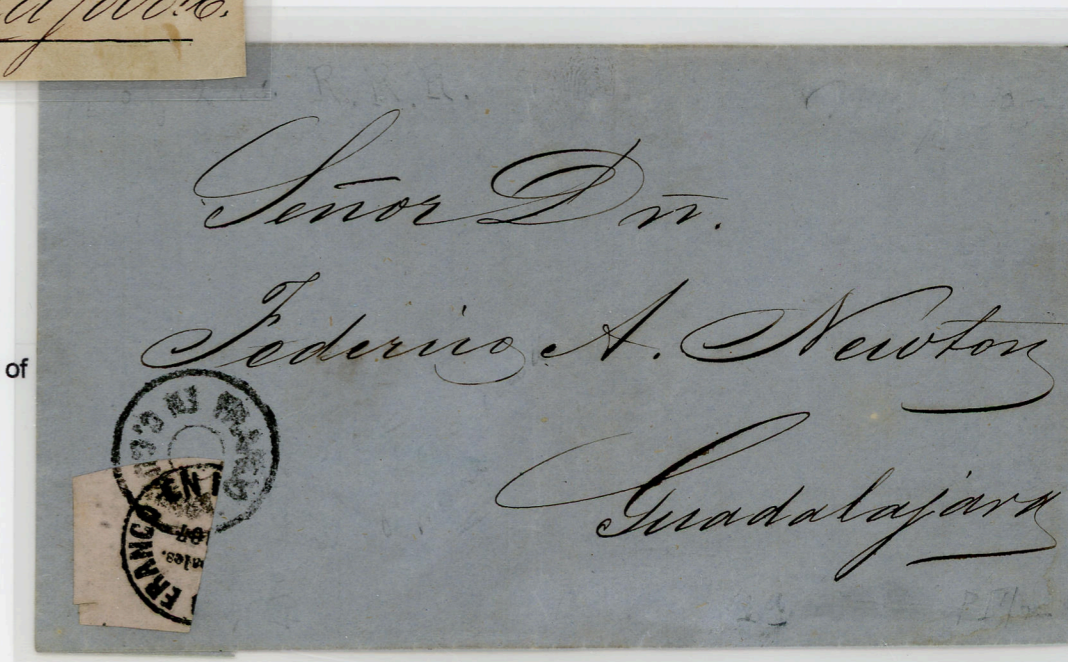 of
R. R. R.
Señor Dn̄.
Federico A. Newton
Guadalajara
FRANCO EN